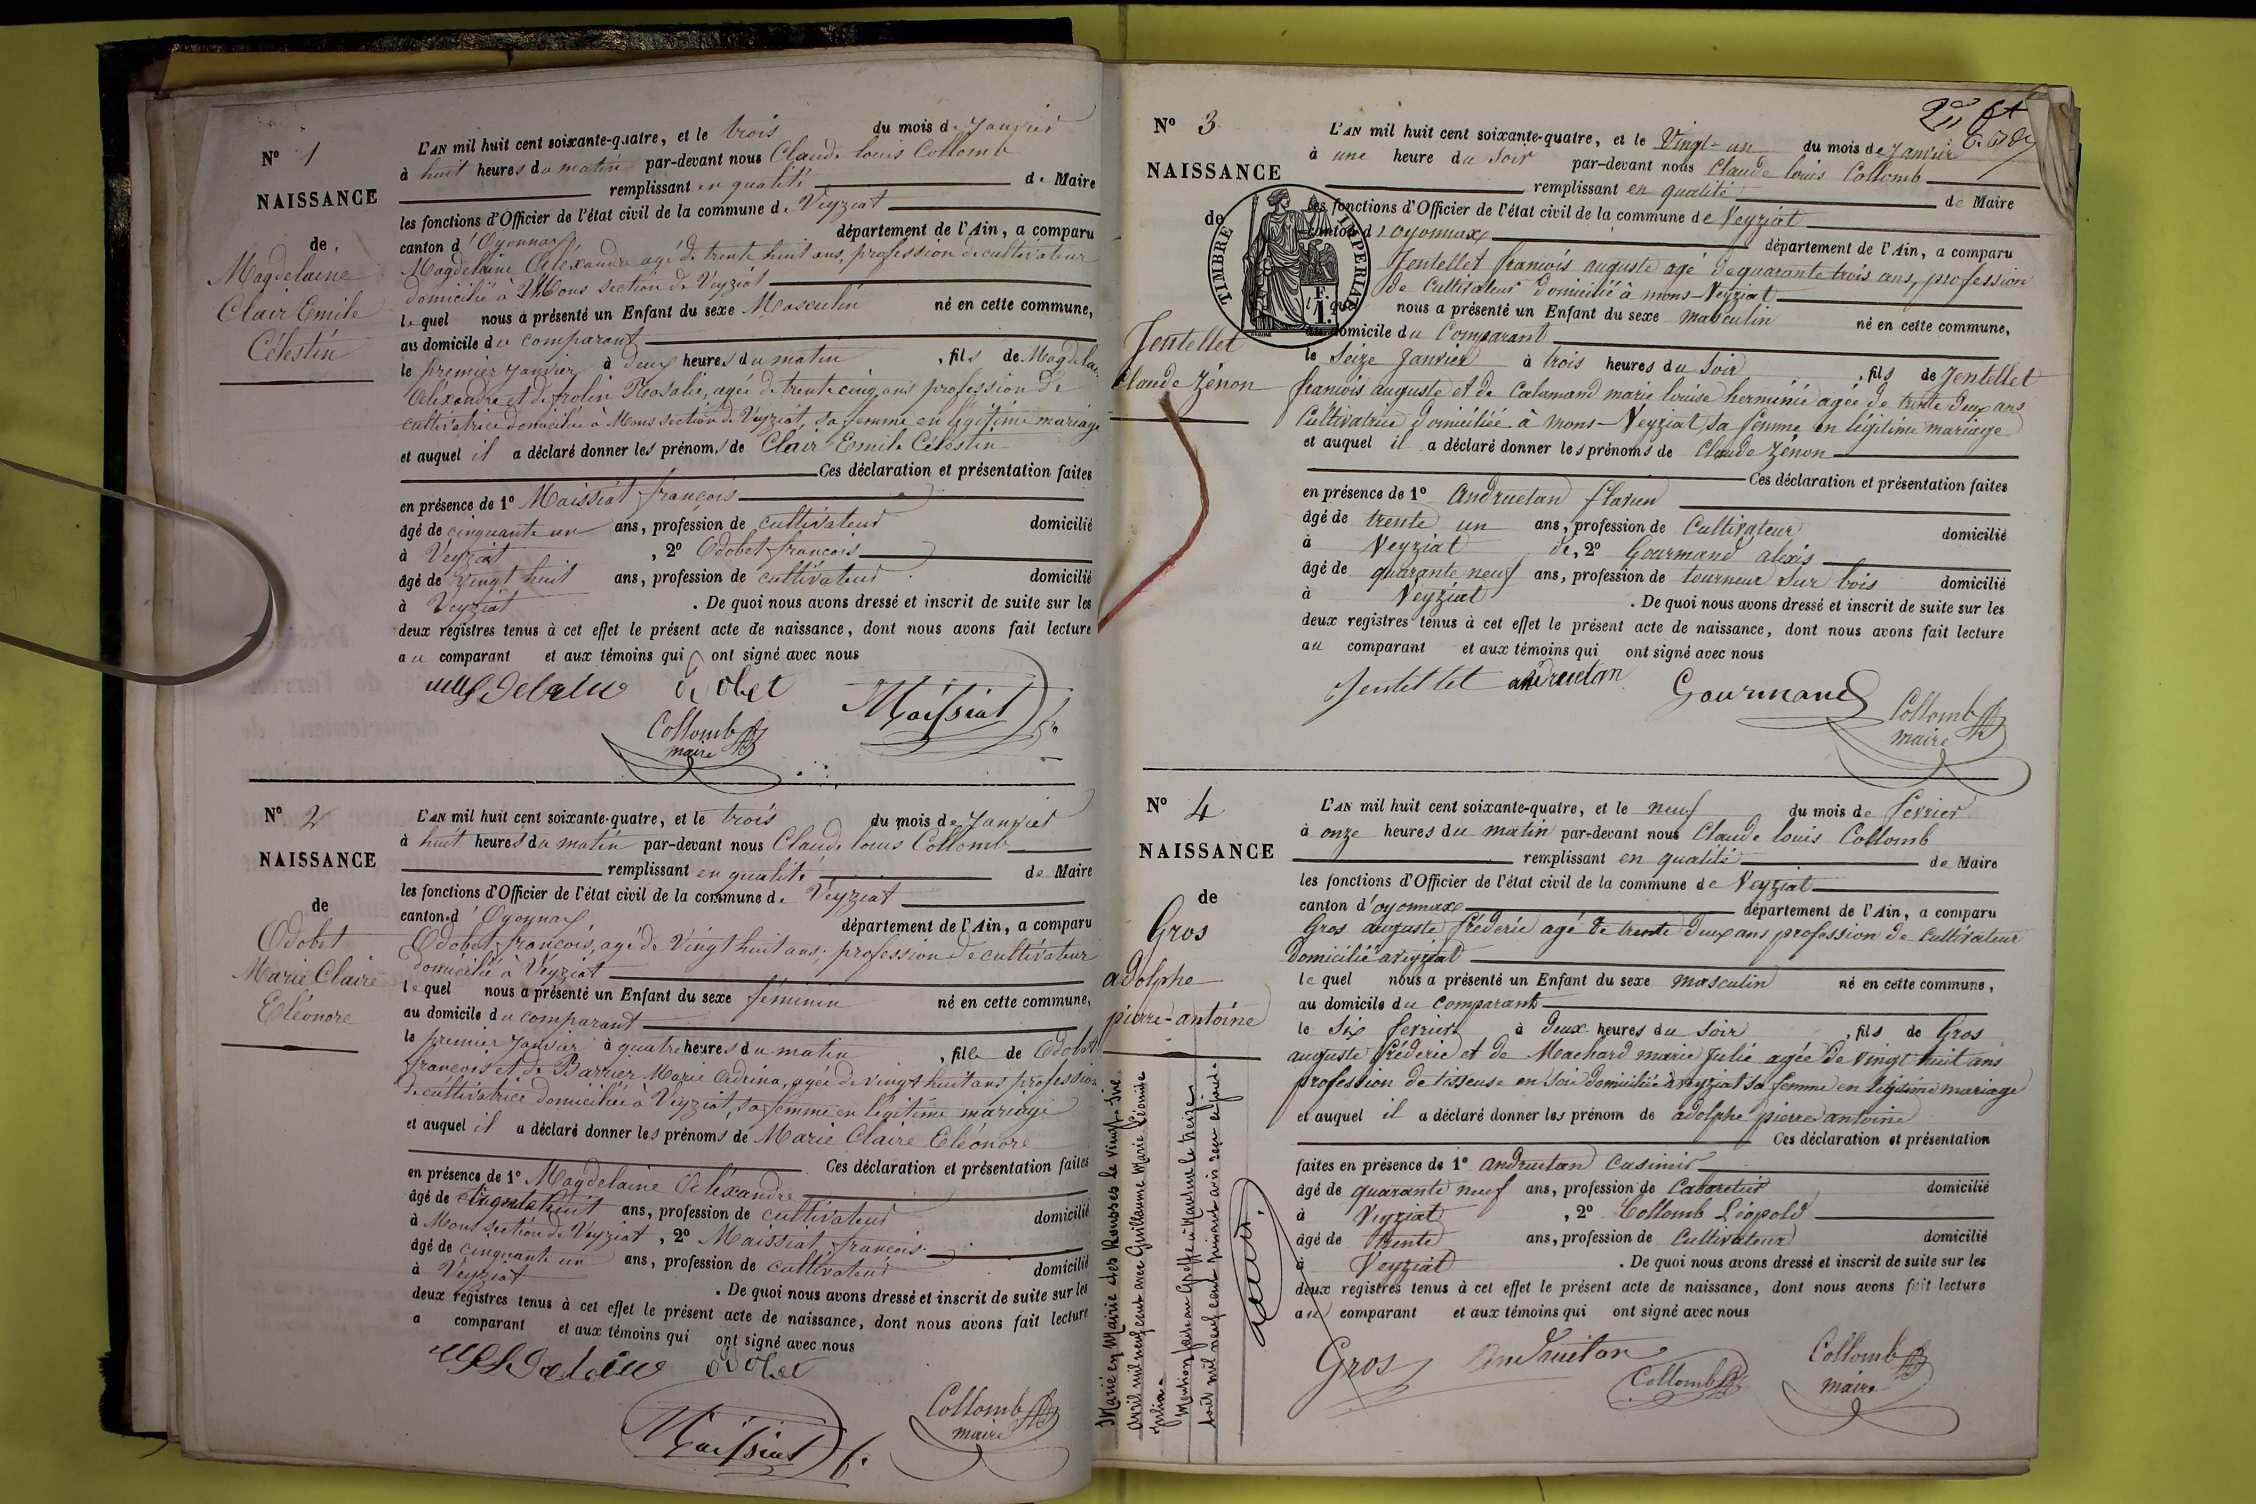 N° 1
NAISSANCE
de
Magdelaine
Clair Emile
Célestin
L'AN mil huit cent soixante-quatre, et le trois du mois de Janvier
à huit heures du matin par-devant nous Claude Louis Collomb
remplissant en qualité de Maire
les fonctions d'Officier de l'état civil de la commune de Veyziat
canton d'Oyonnax département de l'Ain, a comparu
Magdelaine Alexandre agé de trente huit ans, profession de cultivateur
domicilié à Mons section de Veyziat
lequel nous a présenté un Enfant du sexe Masculin né en cette commune,
au domicile du comparant
le premier Janvier à deux heures du matin, fils de Magdelaine
Alexandre et de frolin Rosalie, agée de trente cinq ans profession de
cultivatrice domiciliée à Mons section de Veyziat, sa femme en légitime mariage
et auquel il a déclaré donner les prénoms de Clair Emile Célestin
Ces déclaration et présentation faites
en présence de 1° Maissiat françois
âgé de cinquante un ans, profession de cultivateur domicilié
à Veyziat, 2° Odobet françois
âgé de vingt huit ans, profession de cultivateur domicilié
à Veyziat. De quoi nous avons dressé et inscrit de suite sur les
deux registres tenus à cet effet le présent acte de naissance, dont nous avons fait lecture
au comparant et aux témoins qui ont signé avec nous
odobet Maissiat f.
Collomb
maire
N° 2
NAISSANCE
de
Odobet
Marie Claire
Eléonore
L'AN mil huit cent soixante-quatre, et le trois du mois de Janvier
à huit heures du matin par-devant nous Claude Louis Collomb
remplissant en qualité de Maire
les fonctions d'Officier de l'état civil de la commune de Veyziat
canton d'Oyonnax département de l'Ain, a comparu
Odobet françois, agé de vingt huit ans, profession de cultivateur
domicilié à Veyziat
lequel nous a présenté un Enfant du sexe féminin né en cette commune,
au domicile du comparant
le premier Janvier à quatre heures du matin, fille de Odobet
françois et de Barrier Marie Adrina, agée de vingt huit ans profession
de cultivatrice domiciliée à Veyziat, sa femme en légitime mariage
et auquel il a déclaré donner les prénoms de Marie Claire Eléonore
Ces déclaration et présentation faites
en présence de 1° Magdelaine Alexandre
âgé de trente huit ans, profession de cultivateur domicilié
à Mons section de Veyziat, 2° Maissiat françois
âgé de cinquante un ans, profession de cultivateur domicilié
à Veyziat. De quoi nous avons dressé et inscrit de suite sur les
deux registres tenus à cet effet le présent acte de naissance, dont nous avons fait lecture
a comparant et aux témoins qui ont signé avec nous
odobet
Maissiat f.
Collomb
maire
N° 3
NAISSANCE
de
Jentellet
Claude Zénon
TIMBRE IMPERIAL
1 F.
L'AN mil huit cent soixante-quatre, et le Vingt-un du mois de Janvier
à une heure du soir par-devant nous Claude Louis Collomb
remplissant en qualité de Maire
les fonctions d'Officier de l'état civil de la commune de Veyziat
canton d'oyonnax département de l'Ain, a comparu
Jentellet françois auguste agé de quarante trois ans, profession
de Cultivateur domicilié à mons-Veyziat
lequel nous a présenté un Enfant du sexe masculin né en cette commune,
au domicile du Comparant
le Seize Janvier à trois heures du Soir, fils de Jentellet
françois auguste et de Calamand marie louise herminie agée de trente deux ans
Cultivatrice domiciliée à mons-Veyziat sa femme en légitime mariage
et auquel il a déclaré donner les prénoms de Claude Zénon
Ces déclaration et présentation faites
en présence de 1° andruetan flavien
âgé de trente un ans, profession de Cultivateur domicilié
à Veyziat de, 2° Gourmand alexis
âgé de quarante neuf ans, profession de tourneur sur bois domicilié
à Veyziat. De quoi nous avons dressé et inscrit de suite sur les
deux registres tenus à cet effet le présent acte de naissance, dont nous avons fait lecture
au comparant et aux témoins qui ont signé avec nous
Jentellet andruetan Gourmand
Collomb
maire
N° 4
NAISSANCE
de
Gros
adolphe
pierre-antoine
L'AN mil huit cent soixante-quatre, et le neuf du mois de fevrier
à onze heures du matin par-devant nous Claude Louis Collomb
remplissant en qualité de Maire
les fonctions d'Officier de l'état civil de la commune de Veyziat
canton d'oyonnax département de l'Ain, a comparu
Gros auguste fréderic agé de trente deux ans profession de Cultivateur
domicilié aveyziat
lequel nous a présenté un Enfant du sexe masculin né en cette commune,
au domicile du comparant
le Six fevrier à deux heures du Soir, fils de Gros
auguste fréderic et de Machard marie Julie agée de vingt huit ans
profession de tisseuse en soie domiciliée a veyziat sa femme en légitime mariage
et auquel il a déclaré donner les prénom de adolphe pierre antoine
Ces déclaration et présentation
faites en présence de 1° andruetan Casimir
âgé de quarante neuf ans, profession de Cabaretier domicilié
à Veyziat, 2° Collomb Léopold
âgé de trente ans, profession de Cultivateur domicilié
à Veyziat. De quoi nous avons dressé et inscrit de suite sur les
deux registres tenus à cet effet le présent acte de naissance, dont nous avons fait lecture
au comparant et aux témoins qui ont signé avec nous
Gros andruetan Collomb
Collomb
maire
Marié en Mairie des Rousses le vingt-
Avril mil neuf cent avec Guillaume Marie Léonide
Julia.
Mention faite au Greffe à Nantua le treize
Août mil neuf cent